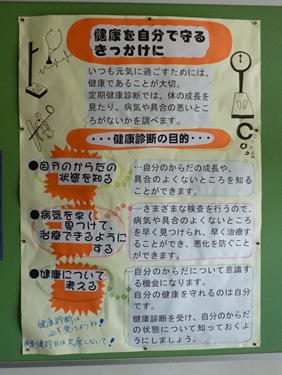 健康を自分で守る
きっかけに
いつも元気に過ごすためには、
健康であることが大切。
定期健康診断では、体の成長を
見たり、病気や具合の悪いとこ
ろがないかを調べます。
・・・健康診断の目的・・・
●自分のからだの
状態を知る
…自分のからだの成長や、
具合のよくないところを知る
ことができます。
●病気を早く
見つけて、
治療できるように
する
…さまざまな検査を行うので、
病気や具合のよくないところ
を早く見つけられ、早く治療
することができ、悪化を防ぐこ
とができます。
●健康について
考える
…自分のからだについて意識す
る機会になります。
自分の健康を守れるのは自分
です。
健康診断を受け、自分のからだ
の状態について知っておくよう
にしましょう。
健康診断は
必ず受けようね!
検診日は欠席しないで!